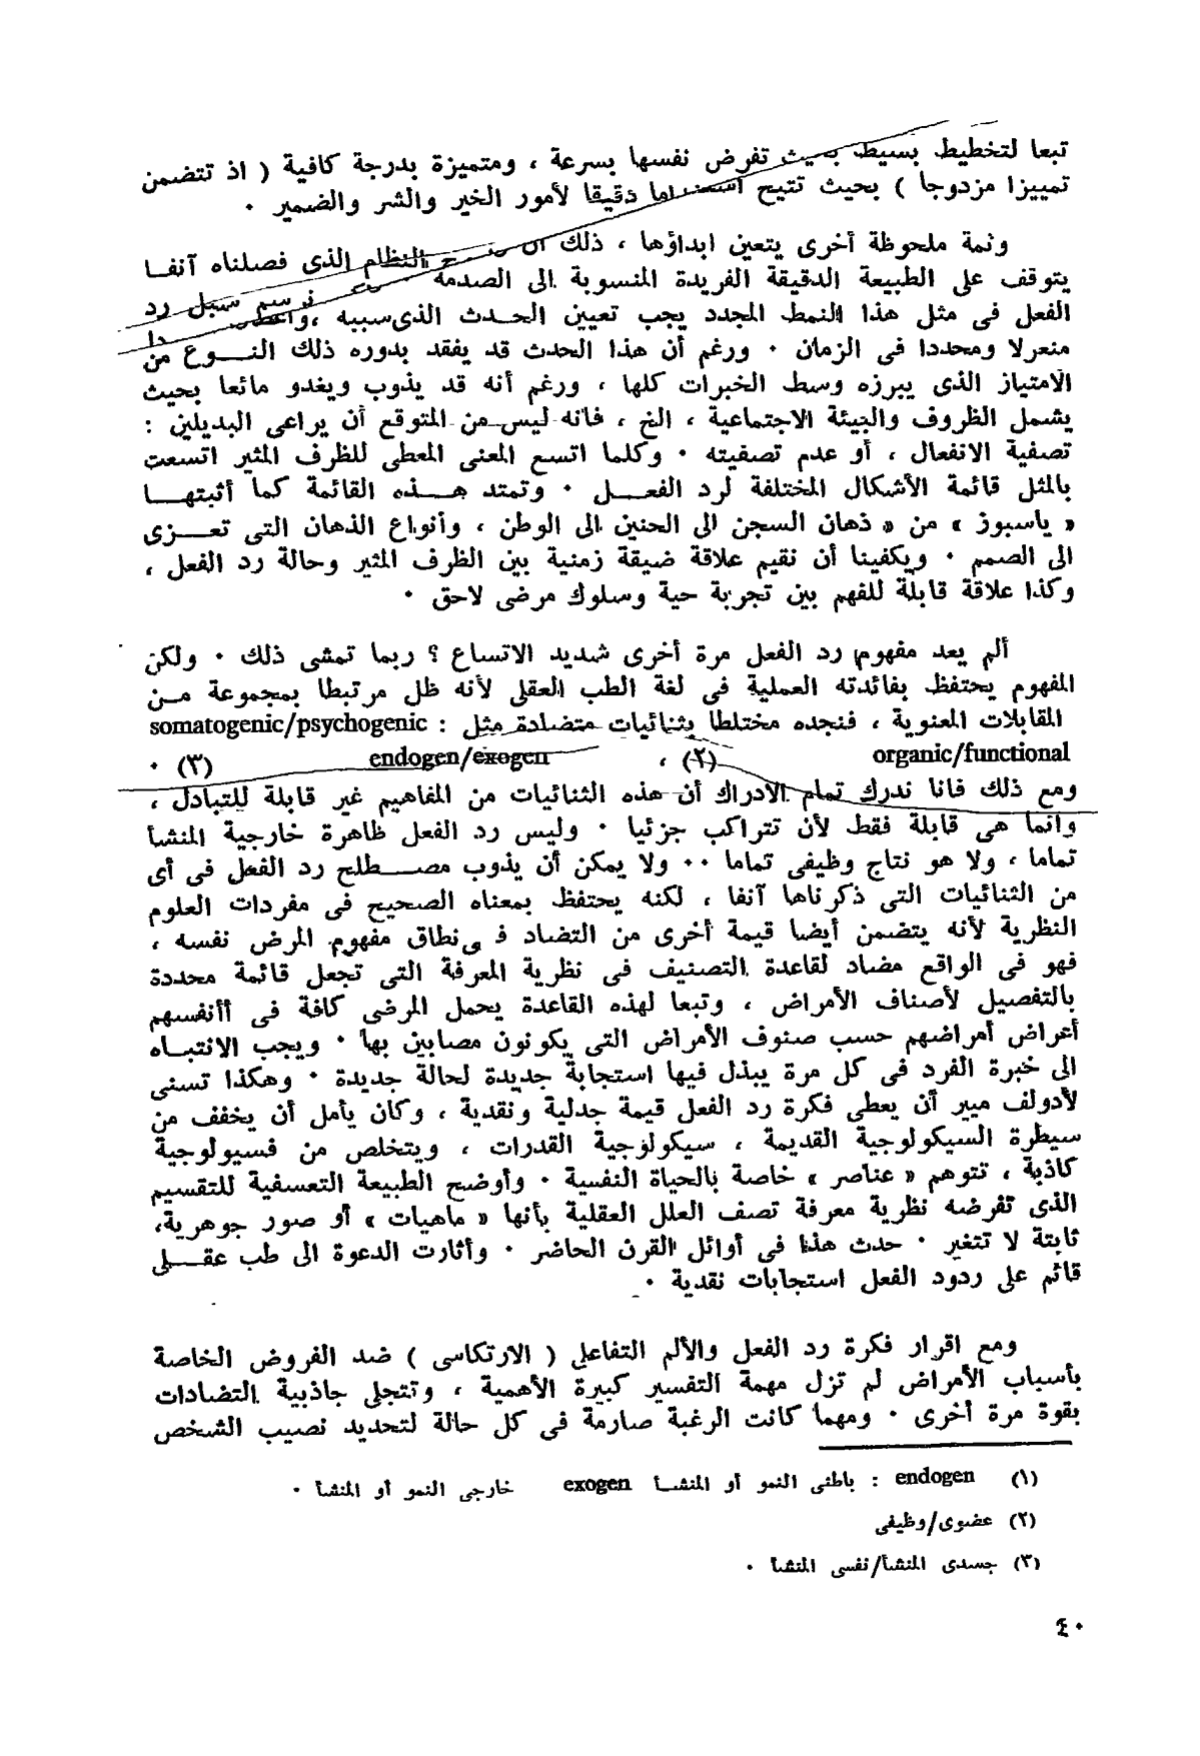 تبعا لتخطيط بسيط بحيث تفرض نفسها بسرعة ، ومتميزة بدرجة كافية ( اذ تتضمن
تمييزا مزدوجا ) بحيث تتيح استخداما دقيقا لأمور الخير والشر والضمير .
وثمة ملحوظة أخرى يتعين ابداؤها ، ذلك أن النظام الذى فصلناه آنفـا
يتوقف على الطبيعة الدقيقة الفريدة المنسوبة الى الصدمة نرسم سبل رد
الفعل فى مثل هذا النمط المجدد يجب تعيين الحـدث الذى سببه ،
منعزلا ومحددا فى الزمان . ورغم أن هذا الحدث قد يفقد بدوره ذلك النـــوع من
الامتياز الذى يبرزه وسط الخبرات كلها ، ورغم أنه قد يذوب ويغدو مائعا بحيث
يشمل الظروف والبيئة الاجتماعية ، الخ ، فانه ليس من المتوقع أن يراعى البديلين :
تصفية الانفعال ، أو عدم تصفيته . وكلما اتسع المعنى المعطى للظرف المثير اتسعت
بالمثل قائمة الأشكال المختلفة لرد الفعـــل . وتمتد هـــذه القائمة كما أثبتهـــا
« ياسبوز » من « ذهان السجن الى الحنين الى الوطن ، وأنواع الذهان التى تعـــزى
الى الصمم . ويكفينا أن نقيم علاقة ضيقة زمنية بين الظرف المثير وحالة رد الفعل ،
وكذا علاقة قابلة للفهم بين تجربة حية وسلوك مرضى لاحق .
ألم يعد مفهوم رد الفعل مرة أخرى شديد الاتساع ؟ ربما تمشى ذلك . ولكن
المفهوم يحتفظ بفائدته العملية فى لغة الطب العقلى لأنه ظل مرتبطا بمجموعة مــن
المقابلات المعنوية ، فنجده مختلطا بثنائيات متضادة مثل : somatogenic/psychogenic
organic/functional (٢) ، endogen/exogen (٣) .
ومع ذلك فانا ندرك تمام الادراك أن هذه الثنائيات من المفاهيم غير قابلة للتبادل ،
وانما هى قابلة فقط لأن تتراكب جزئيا . وليس رد الفعل ظاهرة خارجية المنشأ
تماما ، ولا هو نتاج وظيفى تماما .. ولا يمكن أن يذوب مصـــطلح رد الفعل فى أى
من الثنائيات التى ذكرناها آنفا ، لكنه يحتفظ بمعناه الصحيح فى مفردات العلوم
النظرية لأنه يتضمن أيضا قيمة أخرى من التضاد فى نطاق مفهوم المرض نفسه ،
فهو فى الواقع مضاد لقاعدة التصنيف فى نظرية المعرفة التى تجعل قائمة محددة
بالتفصيل لأصناف الأمراض ، وتبعا لهذه القاعدة يحمل المرضى كافة فى أأنفسهم
أعراض أمراضهم حسب صنوف الأمراض التى يكونون مصابين بها . ويجب الانتبـاه
الى خبرة الفرد فى كل مرة يبذل فيها استجابة جديدة لحالة جديدة . وهكذا تسنى
لأدولف ميير أن يعطى فكرة رد الفعل قيمة جدلية ونقدية ، وكان يأمل أن يخفف من
سيطرة السيكولوجية القديمة ، سيكولوجية القدرات ، ويتخلص من فسيولوجية
كاذبة ، تتوهم « عناصر » خاصة بالحياة النفسية . وأوضح الطبيعة التعسفية للتقسيم
الذى تفرضه نظرية معرفة تصف العلل العقلية بأنها « ماهيات » أو صور جوهرية،
ثابتة لا تتغير . حدث هذا فى أوائل القرن الحاضر . وأثارت الدعوة الى طب عقـــلى
قائم على ردود الفعل استجابات نقدية .
ومع اقرار فكرة رد الفعل والألم التفاعلى ( الارتكاسى ) ضد الفروض الخاصة
بأسباب الأمراض لم تزل مهمة التفسير كبيرة الأهمية ، وتتجلى جاذبية التضادات
بقوة مرة أخرى . ومهما كانت الرغبة صارمة فى كل حالة لتحديد نصيب الشخص
(١) endogen : باطنى النمو أو المنشـأ exogen خارجى النمو أو المنشأ .
(٢) عضوى/وظيفى
(٣) جسدى المنشأ/نفسى المنشأ .
٤٠